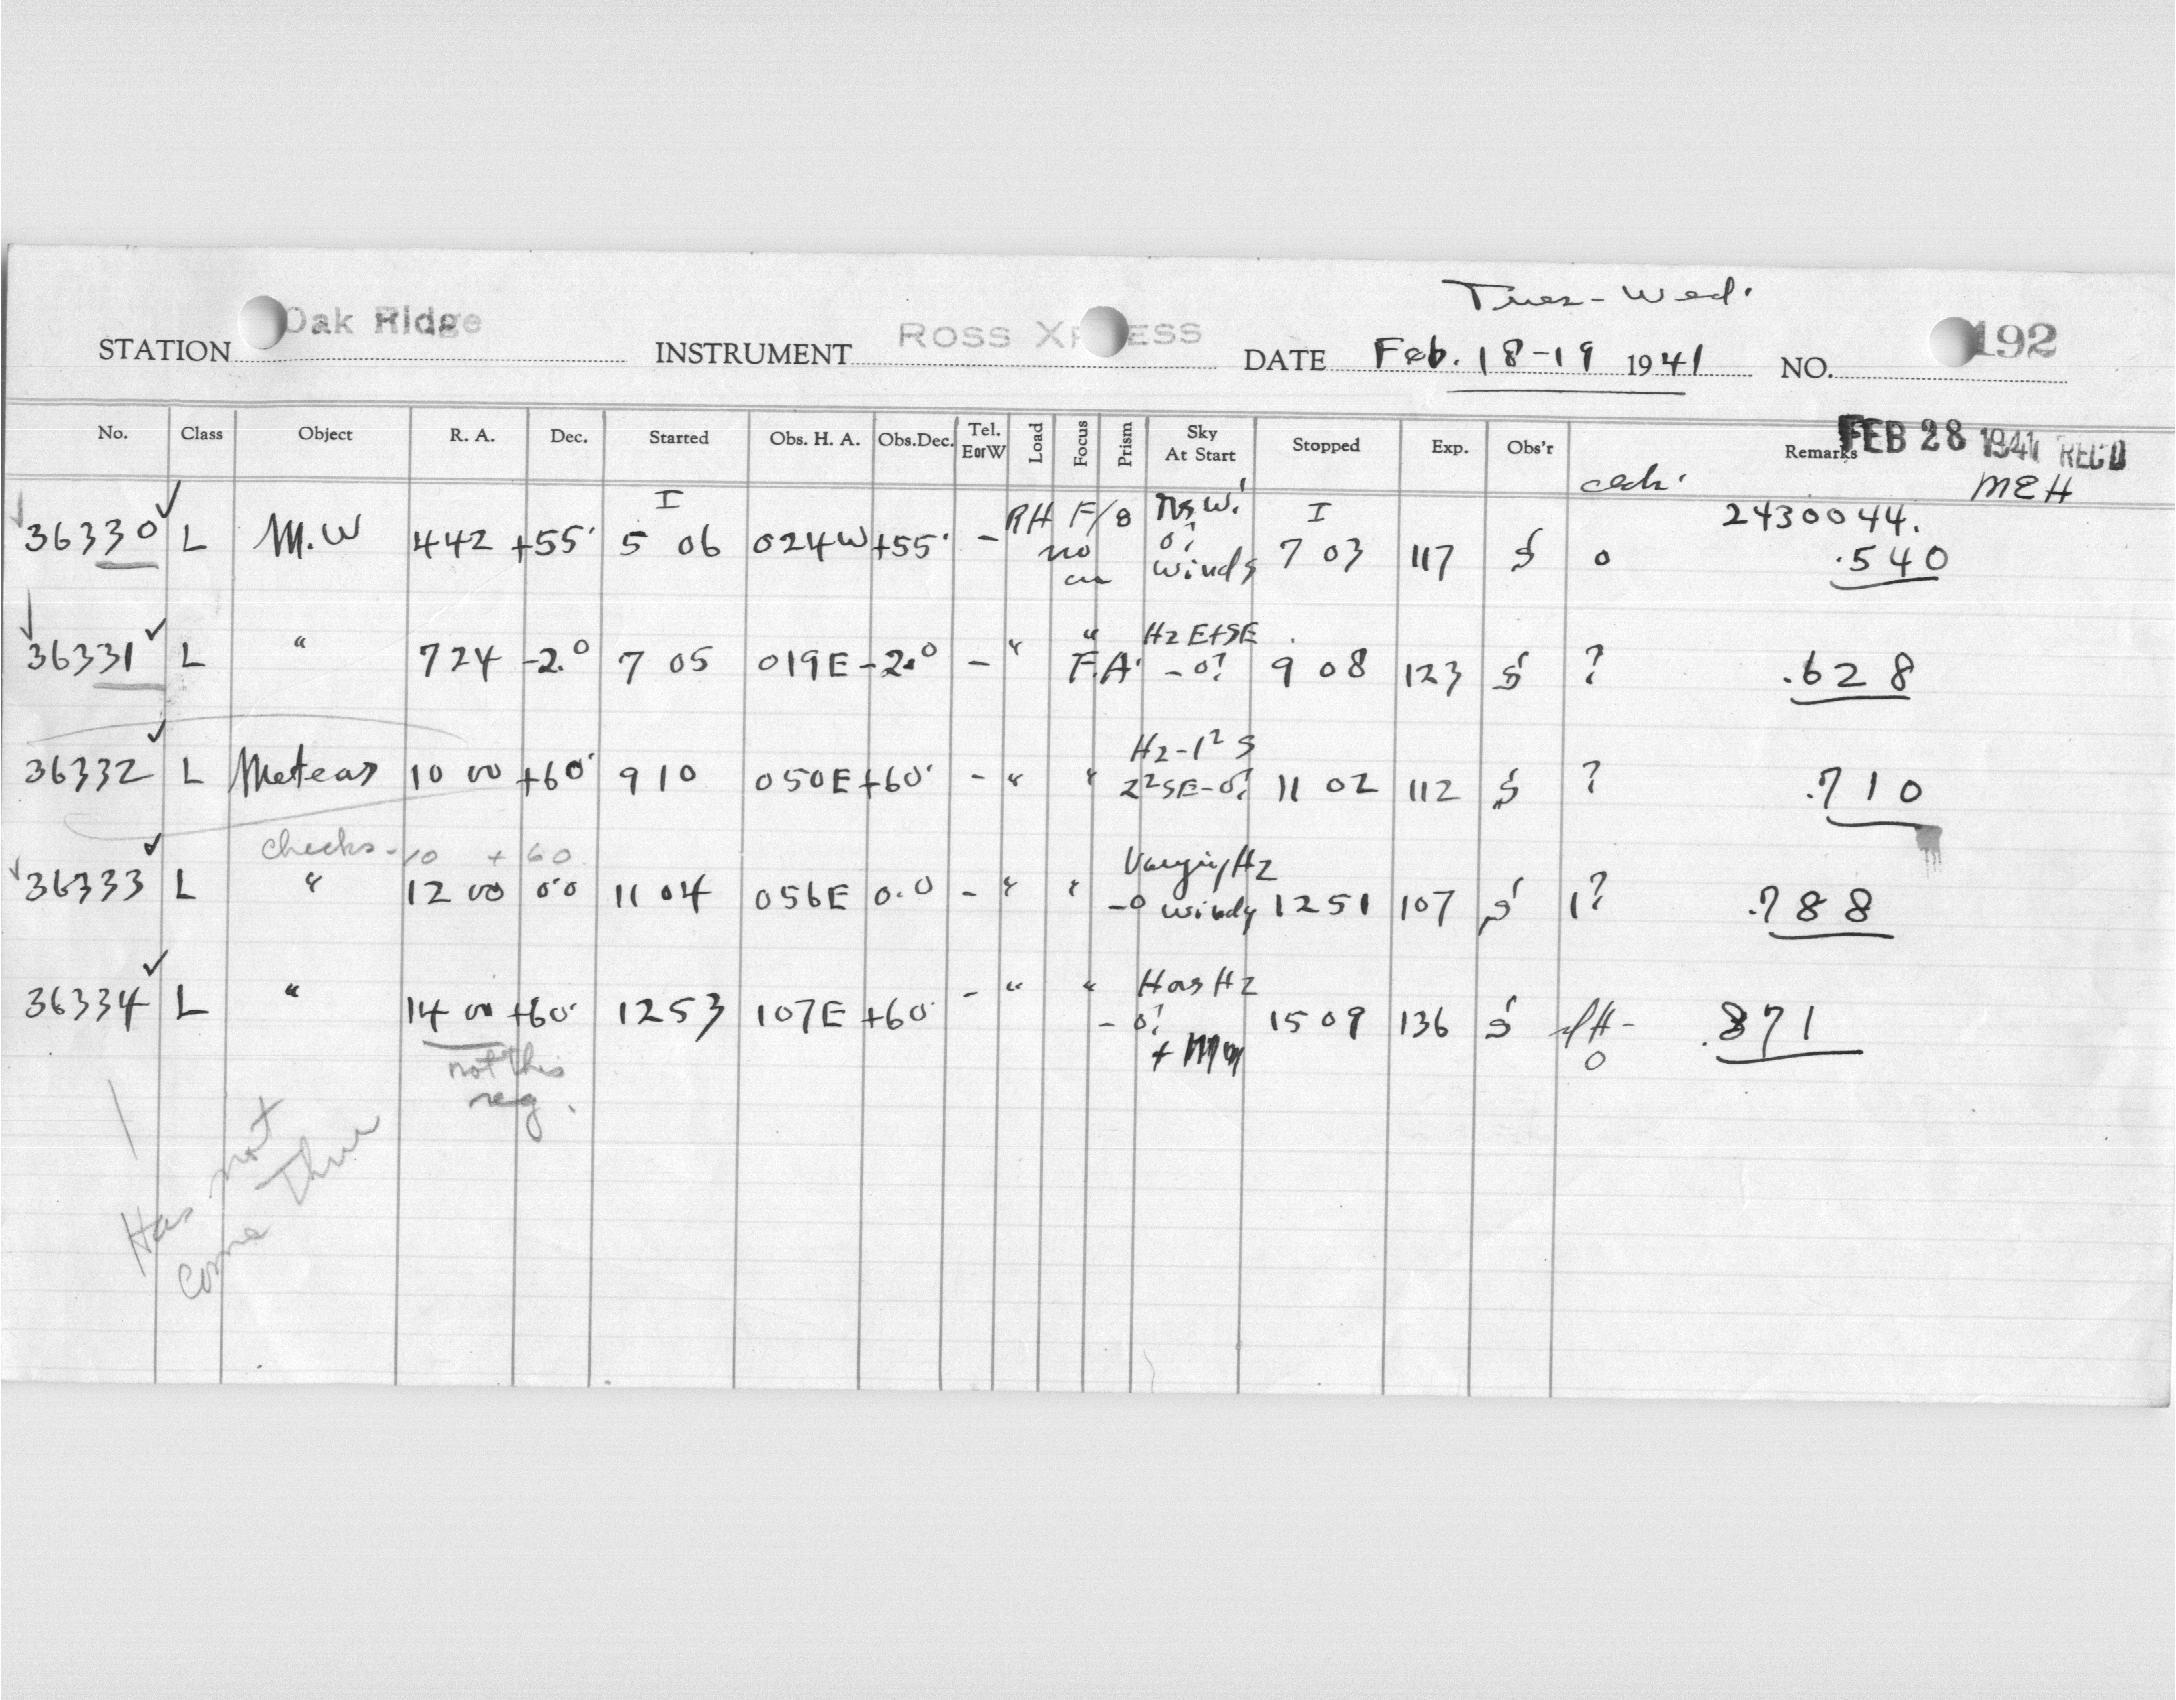 Tues - Wed.
STATION Oak Ridge INSTRUMENT ROSS XPRESS DATE Feb. 18-19 1941 NO. 192
No. Class Object R. A. Dec. Started Obs. H. A. Obs.Dec. Tel. EorW Load Focus Prism Sky At Start Stopped Exp. Obs'r Remarks FEB 28 1941 REC'D
MEH
I RH F/8 I 2430044.
36330 L M.W 442 +55° 5 06 024W +55° - no windy 7 03 117 S 0 .540
36331 L " 724 -2.0 7 05 019E -2.0 - " " F.A. Hz E+SE - 0? 9 08 123 S ? .628
36332 L Meteors 10 00 +60° 9 10 050E +60° - " " Hz-1² S 2²SE-0? 11 02 112 S ? .710
checks - 10 + 60
36333 L " 12 00 0.0 11 04 056E 0.0 - " " Varying Hz -0 windy 12 51 107 S 1? .788
36334 L " 14 00 +60° 12 53 107E +60° - " " Has Hz - 0? + 15 09 136 S 0 .871
not this
reg.
Has not
come thru